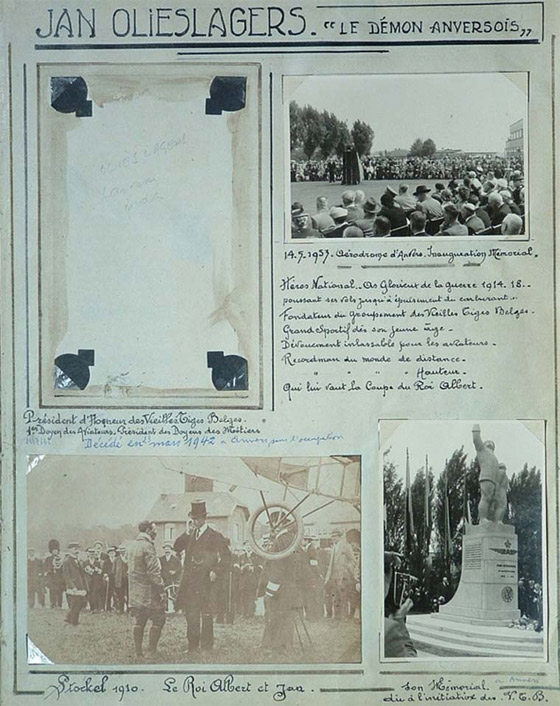 JAN OLIESLAGERS. "LE DÉMON ANVERSOIS„
OLIESLAGERS
14.5.1953. Aérodrome d'Anvers. Inauguration Mémorial.
Héros National.. As Glorieux de la guerre 1914.18..
poussant ses vols jusqu'à épuisement du carburant..
Fondateur du Groupement des Vieilles Tiges Belges.
Grand Sportif dès son jeune âge.
Dévouement inlassable pour les aviateurs.
Recordman du monde de distance.
" " " " Hauteur.
Qui lui vaut la Coupe du Roi Albert.
Président d'Honneur des Vieilles Tiges Belges.
1er Doyen des Aviateurs. Président des Doyens des Métiers
Décédé en mars 1942 à Anvers sous l'occupation
Stockel 1910. Le Roi Albert et Jan.
Son Mémorial. à Anvers
dû à l'initiative des V.T.B.